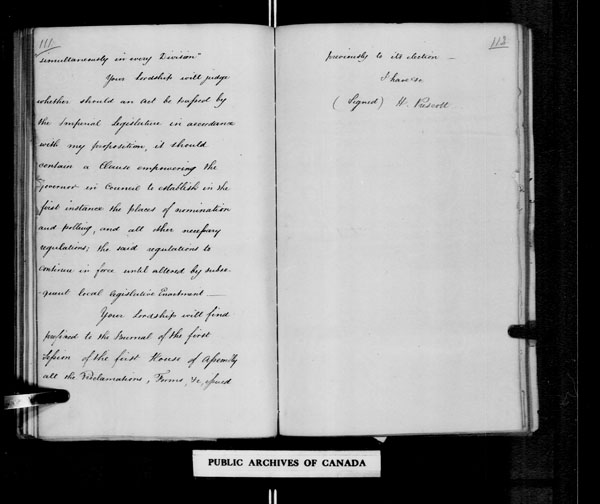 111
simultaneously in every Division"
Your Lordship will judge
whether should an Act be passed by
the Imperial Legislature in accordance
with my proposition, it should
contain a Clause empowering the
Governor in Council to establish in the
first instance the places of nomination
and polling, and all other necessary
regulations; the said regulations to
continue in force until altered by subse-
quent local Legislative Enactment —
Your Lordship will find
prefixed to the Journal of the first
Session of the first House of Assembly
all the Proclamations, Forms, &c, issued
112
previously to its election —
I have &c
(Signed) H. Prescott
PUBLIC ARCHIVES OF CANADA